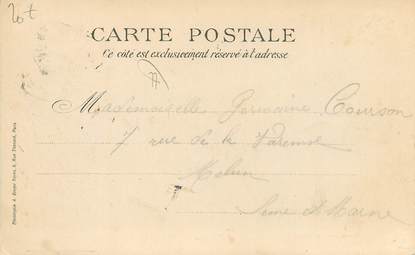 20t
CARTE POSTALE
Ce côté est exclusivement réservé à l'adresse
77
Mademoiselle Germaine Courson
7 rue de la Varenne
Melun
Seine et Marne